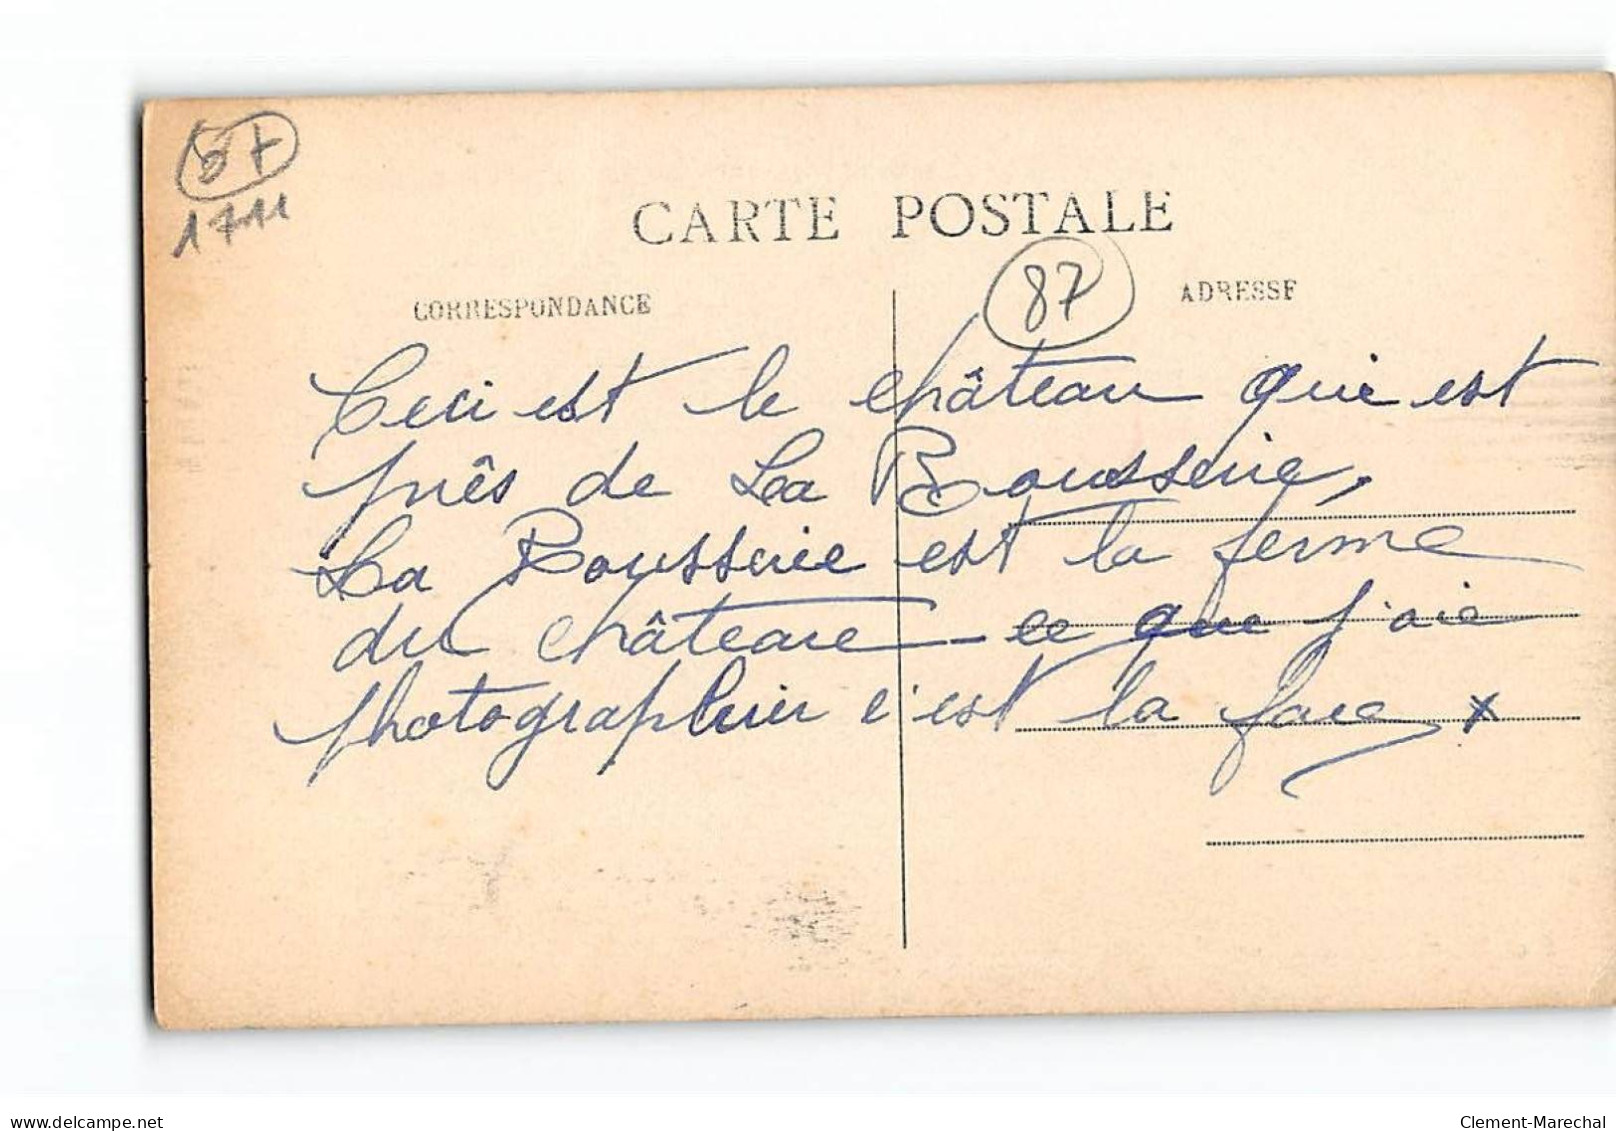 87
1711
CARTE POSTALE
CORRESPONDANCE
87
ADRESSE
Ceci est le château qui est
près de La Rousserie,
La Rousserie est la ferme
du château — ce que j'ai
photographier c'est la face x
delcampe.net
Clement-Marechal